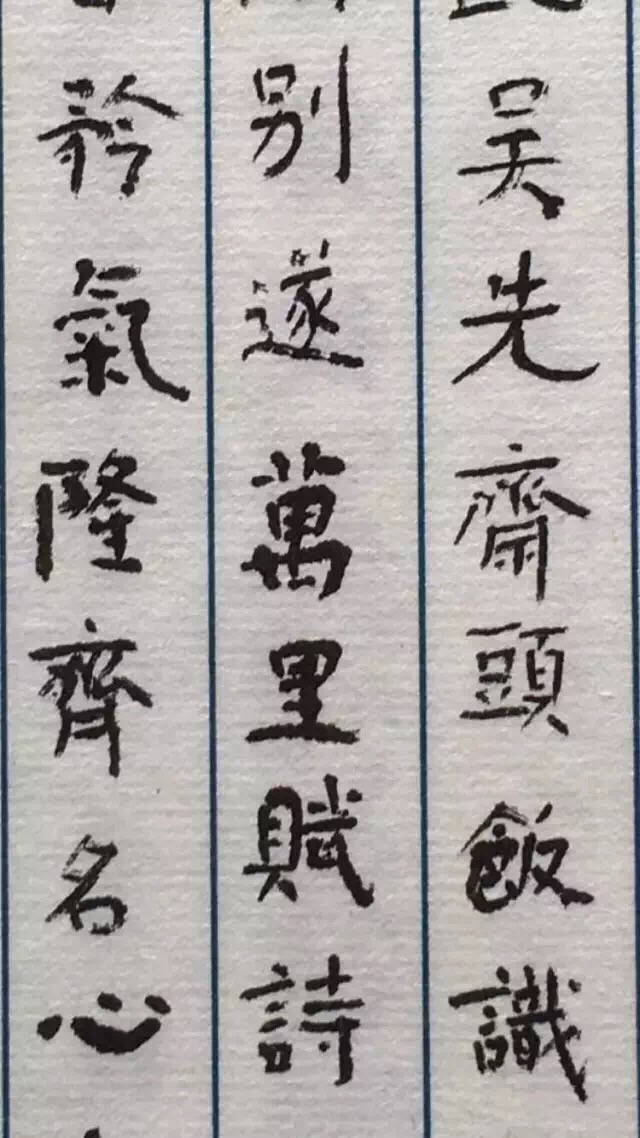 吴先齋頭飯識
别遂萬里賦詩
矜氣隆齊名心